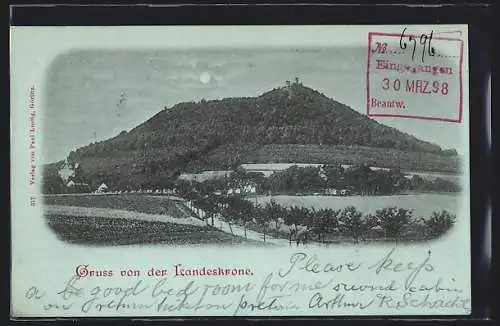 No. 6796
Eingegangen
30 MRZ. 98
Beantw.
317 Verlag von Paul Lustig, Görlitz.
Gruss von der Landeskrone.
Please keep
a be good bed room for me second cabin
on return Arthur R. Schacht